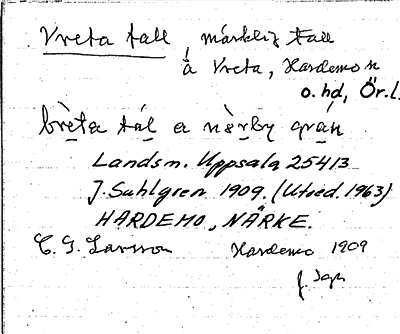 Vreta tall, märklig tall
å Vreta, Hardemo sn
o. hd, Ör. l.
brèta tál a nèrby grán
Landsm. Uppsala 25413
J. Sahlgren 1909. (Utsed. 1963)
HARDEMO, NÄRKE.
C. G. Larsson Hardemo 1909